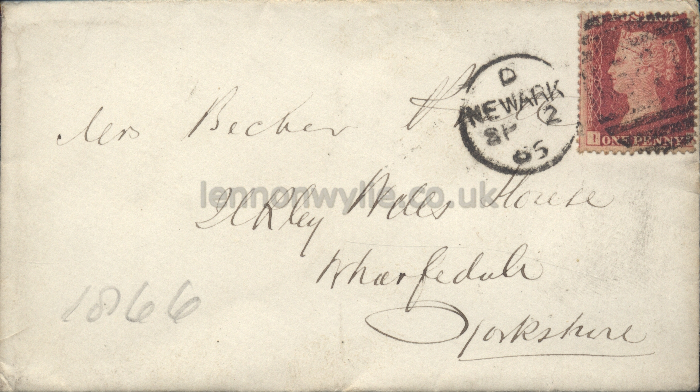 D
NEWARK
SP 2
65
I ONE PENNY
Mrs Becher
lennonwylie.co.uk
Ilkley Wells House
Wharfedale
Yorkshire
1866